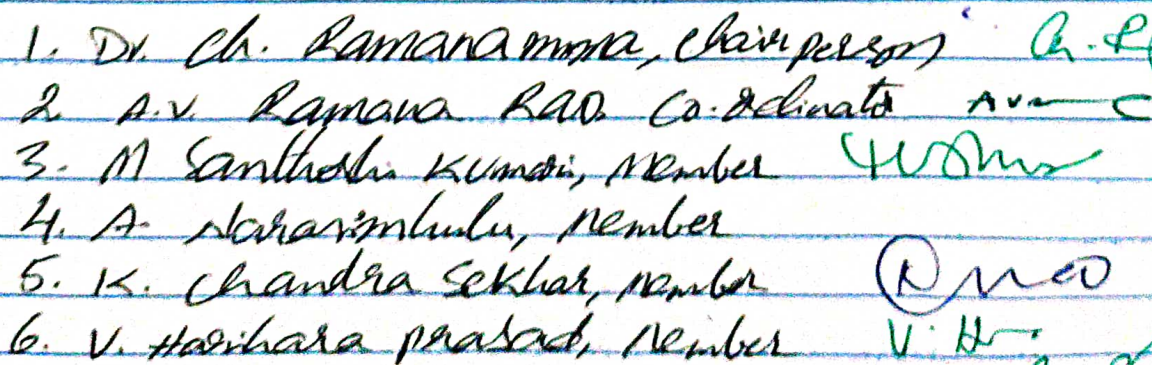 1. Dr. Ch. Ramanamma, Chairperson Ch. R
2. A.V. Ramana Rao. Co-ordinator
3. M Santhoshi Kumari, Member
4. A. Narasimhulu, Member
5. K. Chandra Sekhar, Member
6. V. Harihara prasad, Member V. H